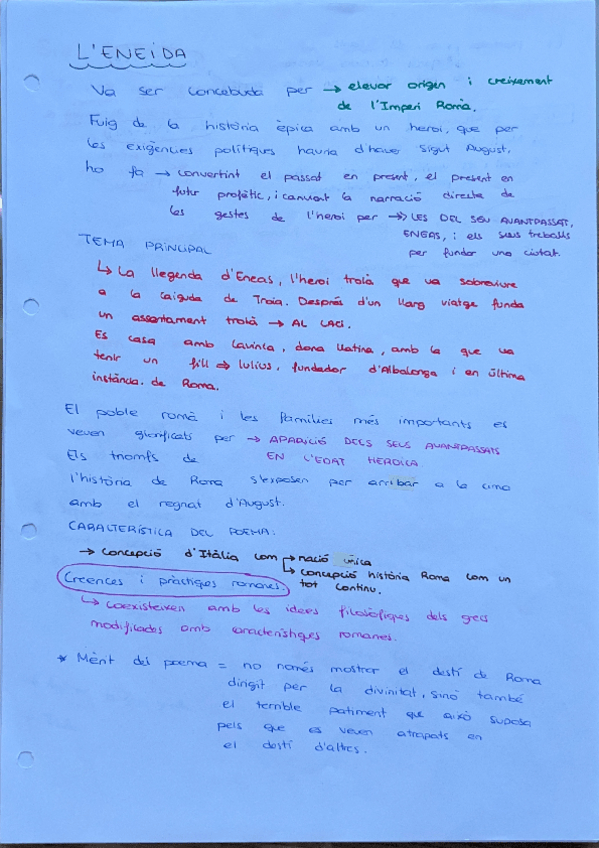 L'ENEIDA
Va ser concebuda per → elevar origen i creixement
de l'Imperi Romà.
Fuig de la història èpica amb un heroi, que per
les exigències polítiques hauria d'haver sigut August,
ho fa → convertint el passat en present, el present en
futur profètic, i canviant la narració directa de
les gestes de l'heroi per → LES DEL SEU AVANTPASSAT,
ENEAS, i els seus treballs
per fundar una ciutat.
TEMA PRINCIPAL
↳ La llegenda d'Eneas, l'heroi troià que va sobreviure
a la caiguda de Troia. Després d'un llarg viatge funda
un assentament troià → AL LACI.
Es casa amb Lavinia, dona llatina, amb la que va
tenir un fill → Iulius, fundador d'Albalonga i en última
instància. de Roma.
El poble romà i les famílies més importants es
veuen glorificats per → APARICIÓ DELS SEUS AVANTPASSATS
EN L'EDAT HEROICA
Els triomfs de
l'història de Roma s'exposen per arribar a la cima
amb el regnat d'August.
CARALTERÍSTICA DEL POEMA:
→ Concepció d'Itàlia com → nació única
↳ concepció història Roma com un
tot continu.
Creences i pràctiques romanes.
↳ Coexisteixen amb les idees filosòfiques dels grecs
modificades amb característiques romanes.
* Mèrit del poema = no només mostrar el destí de Roma
dirigit per la divinitat, sinó també
el terrible patiment que això suposa
pels que es veuen atrapats en
el destí d'altres.